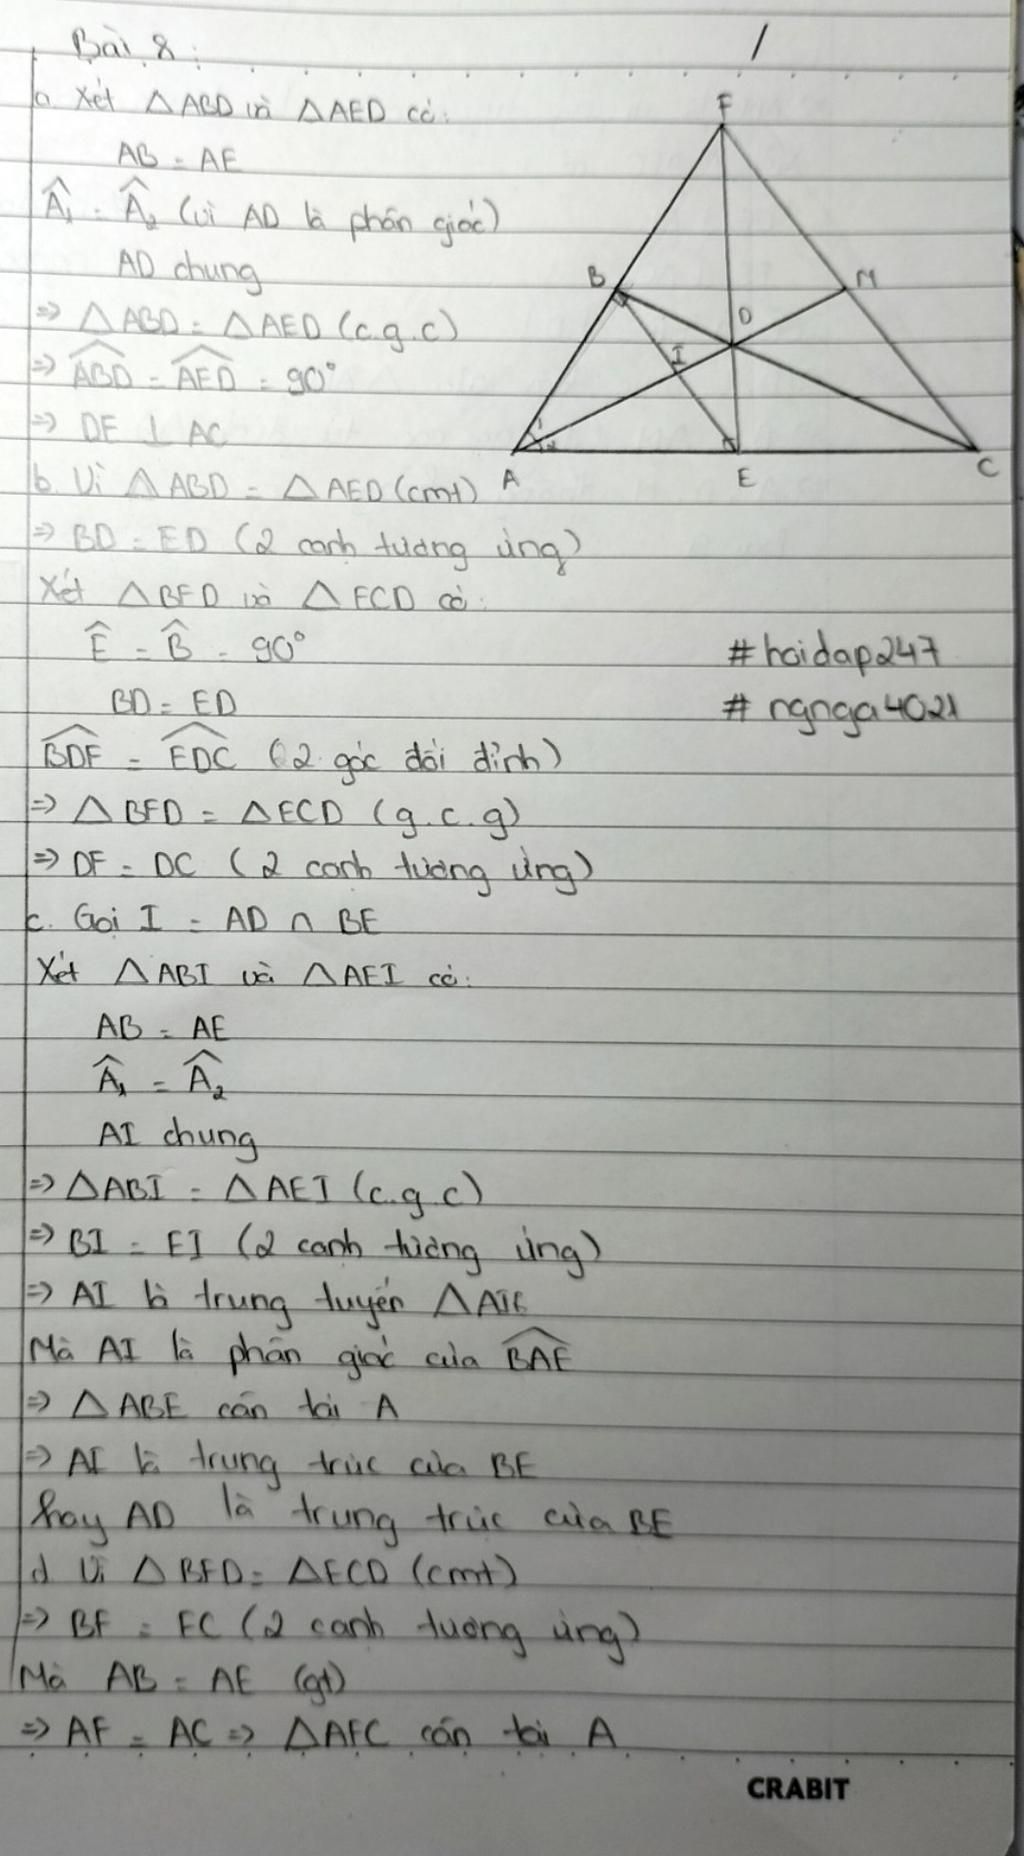 Bài 8:
a. Xét △ABD và △AED có:
AB = AE
Â₁ = Â₂ (vì AD là phân giác)
AD chung
=> △ABD = △AED (c.g.c)
=> ABD = AED = 90°
=> DE ⊥ AC
b. Vì △ABD = △AED (cmt)
=> BD = ED (2 cạnh tương ứng)
Xét △BFD và △ECD có:
Ê = B̂ = 90°
BD = ED
BDF = EDC (2 góc đối đỉnh)
=> △BFD = △ECD (g.c.g)
=> DF = DC (2 cạnh tương ứng)
c. Gọi I = AD ∩ BE
Xét △ABI và △AEI có:
AB = AE
Â₁ = Â₂
AI chung
=> △ABI = △AEI (c.g.c)
=> BI = EI (2 cạnh tương ứng)
=> AI là trung tuyến
Mà AI là phân giác của BAE
=> △ABE cân tại A
=> AI là trung trực của BE
hay AD là trung trực của BE
d. Vì △BFD = △ECD (cmt)
=> BF = EC (2 cạnh tương ứng)
Mà AB = AE (gt)
=> AF = AC => △AFC cân tại A
F
B
M
D
I
1
2
A
E
C
#hoidap247
# ngnga4021
CRABIT